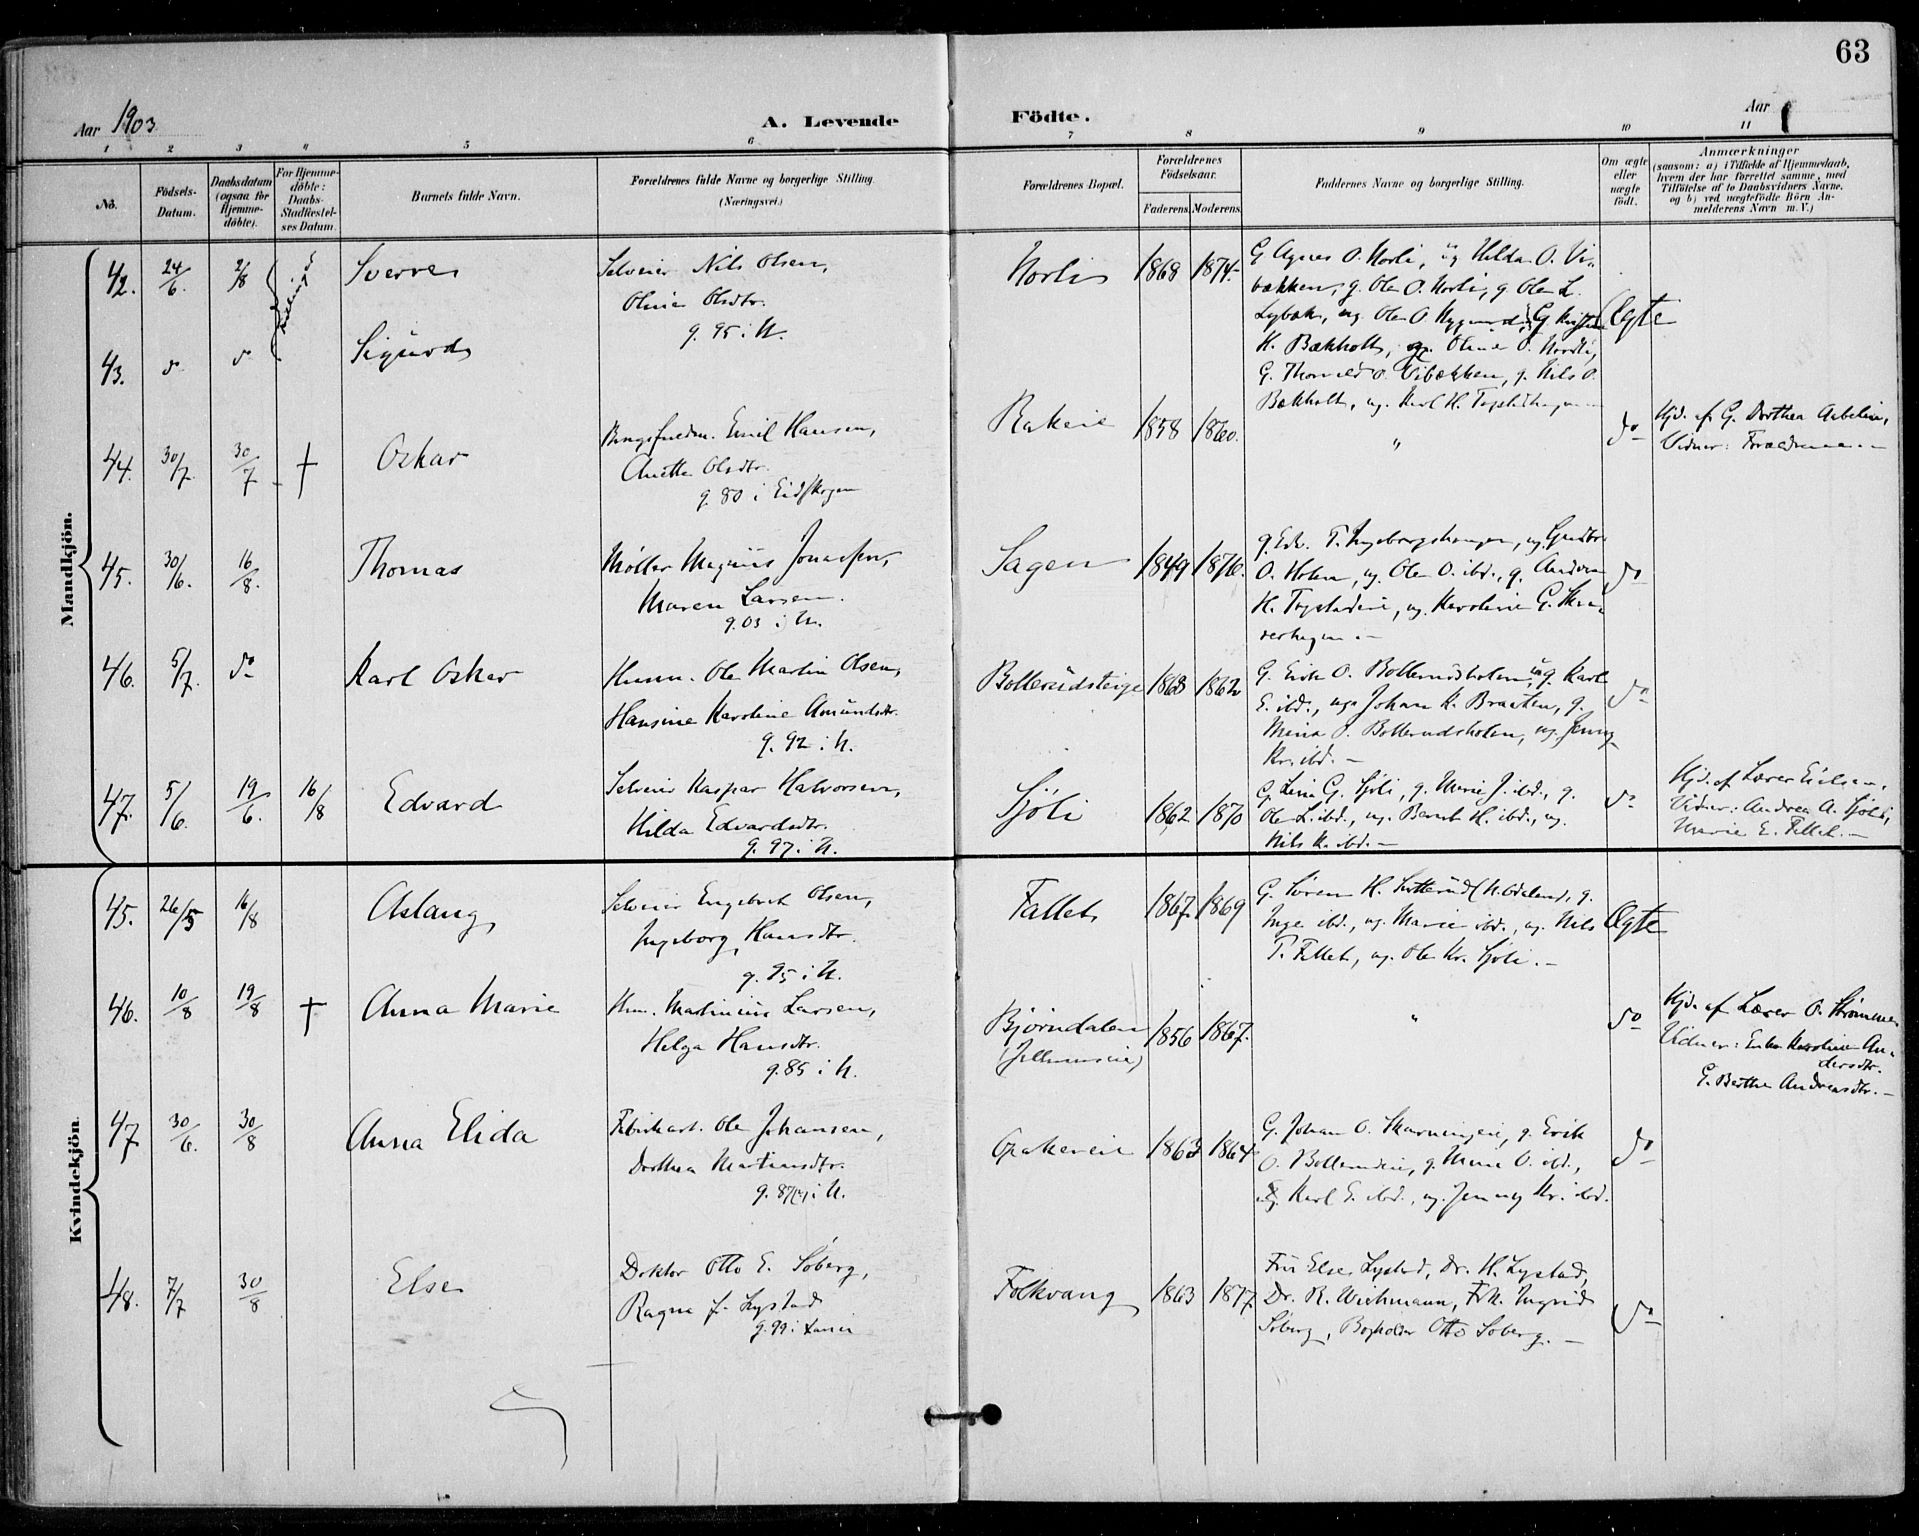 63
Aar 1903
A. Levende
Födte.
Aar
1 2 3 4 5 6 7 8 9 10 11
No.
Födsels-
Datum.
Daabsdatum
(ogsaa for
Hjemme-
döbte).
For Hjemme-
döbte:
Daabs-
Stadfæstel-
ses Datum.
Barnets fulde Navn.
Forældrenes fulde Navne og borgerlige Stilling.
(Næringsvei.)
Forældrenes Bopæl.
Forældrenes
Födselsaar.
Faderens. Moderens.
Faddernes Navne og borgerlige Stilling.
Om ægte
eller
uægte
födt.
Anmærkninger
(saasom: a) i Tilfælde af Hjemmedaab,
hvem der har forrettet samme, med
Tilföielse af to Daabsvidners Navne,
og b) ved uægtefödte Börn An-
melderens Navn m. V.)
Mandkjön.
42. 24/6 2/8 Sverre
Selveier Nils Olsen,
Oline Olsdtr.
g. 95 i N.
Norli 1868 1874
G. Agnes O. Norli, ug. Hilda O. Vi-
bækken, g. Ole O. Norli, g. Ole L.
Lybæk, ug. Ole O. Nygaard,
H. Bækholt,
G. Thorvald O. Vibækken, g. Nils O.
Bækholt, ug. Karl H.
Ægte
43. do do Sigurd
44. 30/7 30/7 † Oskar
Emil Hansen,
Anette Olsdtr.
g. 80 i Eidskogen
Rakeie 1858 1860.
"
do
Hjd. af G. Dorthea
Vidner: Forældrene. —
45. 30/6. 16/8. Thomas
Møller Magnus Jonassen,
Maren Larsen.
g. 03 i N.
Sagen 1849 1876.
O. Holen, ug. Ole O. ibd., g.
H. ug. Karoline G.
do
46. 5/7. do Karl Oskar
Husm. Ole Martin Olsen,
Hansine Karoline Amundsdtr.
g. 92 i N.
Bollerudsteige 1863 1862
G. Erik O. Bollerudsholen, ug. Karl
E. ibd., ug. Johan K. Braaten, g.
Mina O. Bollerudsholen, ug. Jenny
Kr. ibd. —
do
47. 5/6. 19/6. 16/8 Edvard
Selveier Kaspar Halvorsen,
Hilda Edvardsdtr.
g. 97 i N.
Sjøli 1862 1870
G. Lina G. Sjøli, g. Marie J. ibd., g.
Ole L. ibd., ug. Bernt H. ibd., ug.
Nils K. ibd. —
do
Hjd. af Lærer
Vidner: Andrea A. Sjøli,
Marie E. —
Kvindekjön.
45. 26/5 16/8 Aslaug
Selveier Engebret Olsen,
Ingeborg Hansdtr.
g. 95 i N.
Fallet 1867. 1869
G. Søren H.
Inge ibd., ug. Marie ibd., ug. Nils
T. Fallet, ug. Ole Kr. Sjøli. —
Ægte
46. 10/8 19/8 † Anna Marie
Hm. Martinius Larsen,
Helga Hansdtr.
g. 85 i N.
Bjørndalen 1856 1867.
"
do
Hjd. af Lærer O. Strømmen
Vidner: Karoline An-
dersdtr.
G. Berthe Andreasdtr. —
47. 30/6. 30/8 Anna Elida
Ole Johansen,
Dorthea Martinsdtr.
g. 87 i N.
Opakereie 1863 1864
G. Johan O. g. Erik
O. Bollerudeie, g. Mina O. ibd.,
ug. Karl E. ibd., ug. Jenny Kr. ibd.
do
48. 7/7 30/8 Else
Doktor Otto E. Søberg,
Ragna f. Lystad
g. 99 i
Folkvang 1863 1877.
Fru Else Lystad, Dr. H. Lystad,
Dr. R. Wichmann, Frk. Ingrid
Søberg, Bogholder Otto Søberg. —
do